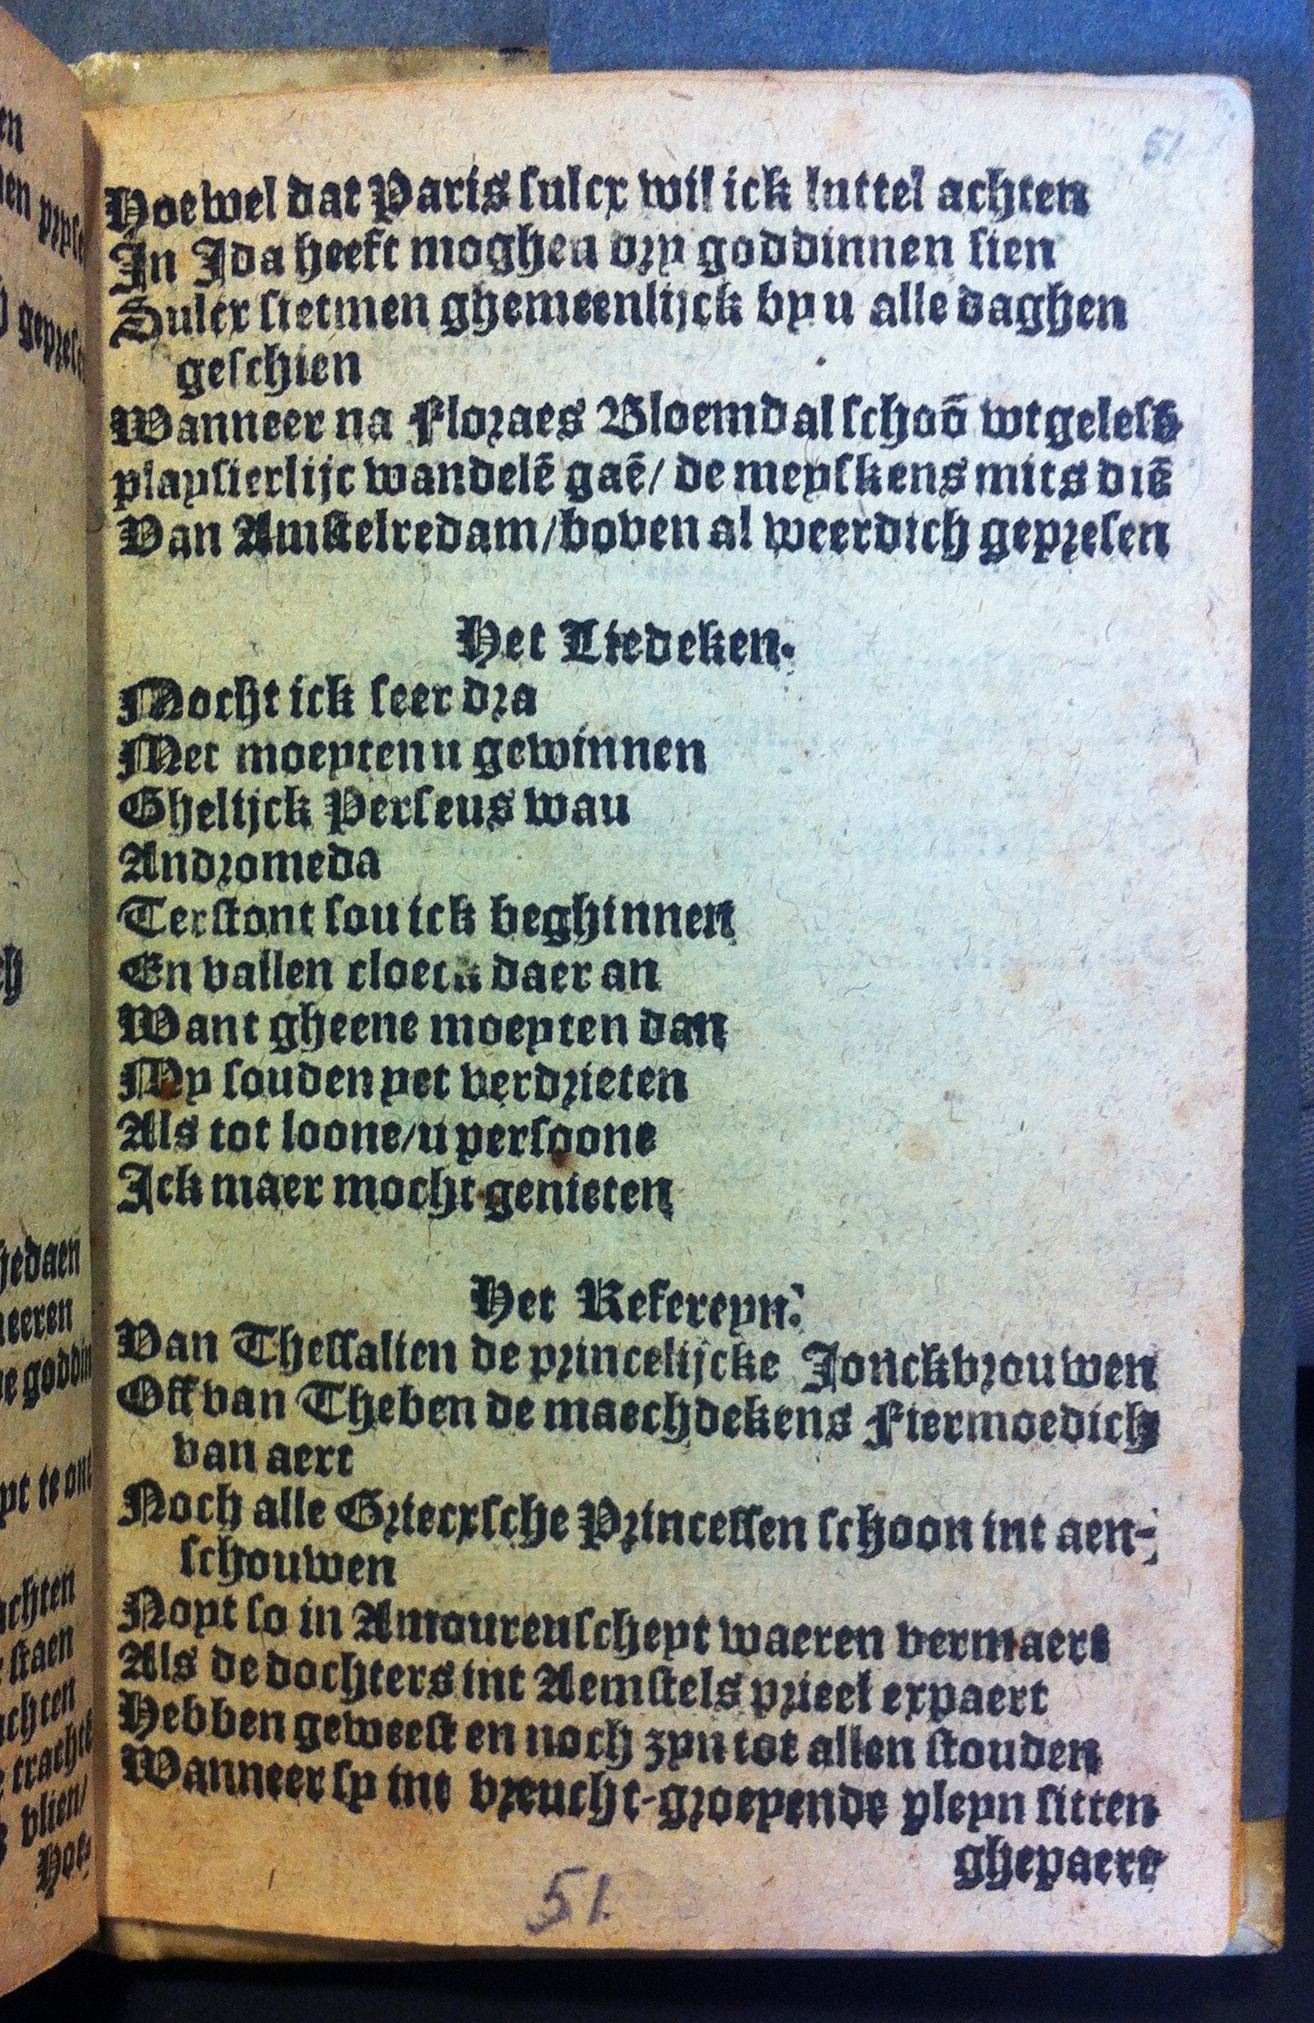 51
Hoewel dat Paris sulcx wil ick luttel achten
In Ida heeft moghen dry goddinnen sien
Sulcx sietmen ghemeenlijck by u alle daghen
geschien
Wanneer na Floraes Bloemdal schoō wtgelesē
playsierlijc wandelē gaē/ de meyskens mits diē
Van Amstelredam/boven al weerdich gepresen
Het Liedeken.
Mocht ick seer dra
Met moeyten u gewinnen
Ghelijck Perseus wau
Andromeda
Terstont sou ick beghinnen
En vallen cloeck daer an
Want gheene moeyten dan
My souden yet verdrieten
Als tot loone/u persoone
Ick maer mocht genieten
Het Refereyn.
Van Thessalien de princelijcke Jonckvrouwen
Off van Theben de maechdekens Fiermoedich
van aert
Noch alle Griecxsche Princessen schoon int aen-
schouwen
Noyt so in Amoureuscheyt waeren vermaert
Als de dochters int Aemstels prieel expaert
Hebben geweest en noch zyn tot allen stouden
Wanneer sy int vreucht-groeyende pleyn sitten
ghepaert
51.